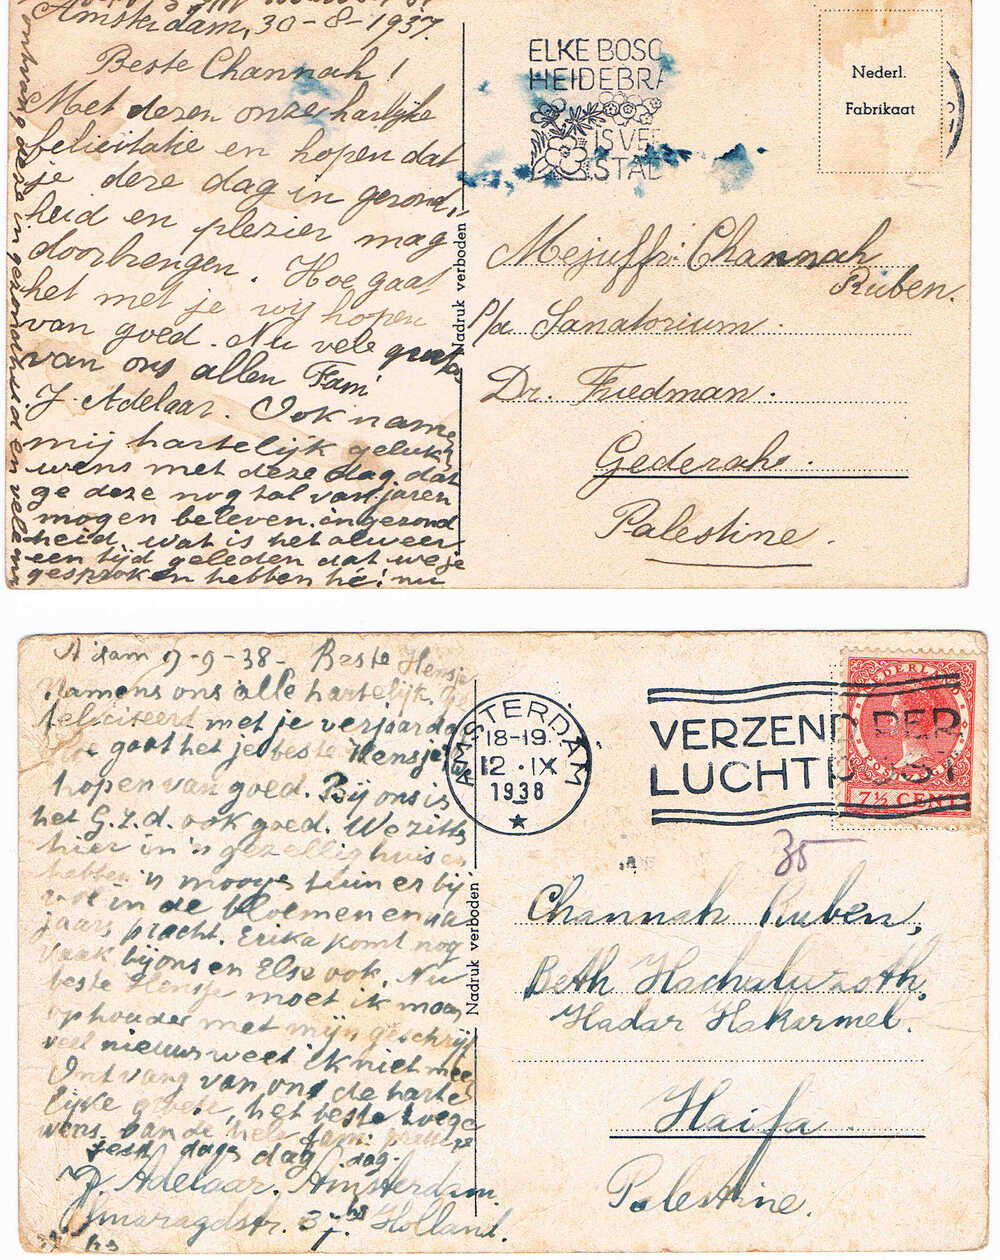 Amsterdam, 30-8-1937.
Beste Channah!
Met deren onze hartlijke
felicitatie en hopen dat
je deze dag in gerond-
heid en plezier mag
doorbrengen. Hoe gaat
het met je wij hopen
van goed. Nu vele
van ons allen Fam
J. Adelaar. Ook name
mij hartelijk geluk
wens met deze dag. dat
ge deze nog tal van jaren
mogen beleven. in gezond
heid, wat is het alweer
een tijd geleden dat we je
gesproken hebben hé! nu
ontvang deze in gezondheid en vele
Nadruk verboden
ELKE BOSC
HEIDEBRA
IS VER
STAD
Nederl.
Fabrikaat
Mejuffr. Channah
Ruben.
p/a Sanatorium.
Dr. Friedman.
Gederah.
Palestine.
A'dam 9-9-38- Beste Hensje
Namens ons alle hartelijk ge
feliciteerd met je verjaarda
gaat het je beste Hensje
hopen van goed. Bij ons is
het G.z.d. ook goed. We zitte
hier in 'n gezellig huis en
hebben 'n mooye tuin er bij
vol in de bloemen en na
jaars pracht. Erika komt nog
vaak bij ons en Else ook. Nu
beste Hensje moet ik maar
ophouden met mijn geschrijf
veel nieuws weet ik niet mee
Ontvang van ons de harte
lijke groete, het beste toege
wens. van de hele fam.
feest dag dag dag.
J. Adelaar. Amsterdam.
Smaragdstr. 37 hs Holland.
Nadruk verboden
AMSTERDAM
18-19
12·IX
1938
VERZEND PER
LUCHTPOST
NEDERLAND
7½ CENT
35
Channah Ruben,
Beth Hachaluzoth,
Hadar Hakarmel.
Haifa
Palestine.